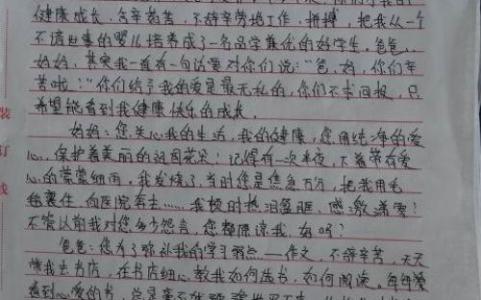 健康成长,含辛茹苦,不辞辛劳地工作,拼搏,把我从一个
不谙世事的婴儿培养成了一名品学兼优的好学生。爸爸、
妈妈,其实我一直有一句话要对你们说:“爸、妈,你们辛
苦啦!”你们给予我的爱是最无私的,你们不求回报,只
希望能看到我健康快乐的成长。
妈妈:您关心我的生活,我的健康,您用纯净的爱
心,保护着美丽的祖国花朵!记得有一次半夜,下着带有爱
心的蒙蒙细雨,我发烧了,当时您是焦急万分,把我用毛
毯裹住,向医院奔去……我顿时热泪盈眶,感激涕零!
不管以前我对您多少怨言,您都原谅我,好吗?
爸爸:您为了弥补我的学习弱点——作文,不辞辛苦,天天
带我去书店,在书店细心教我如何选书,如何阅读。每每爱
看到心爱的书,总是
装
订
线